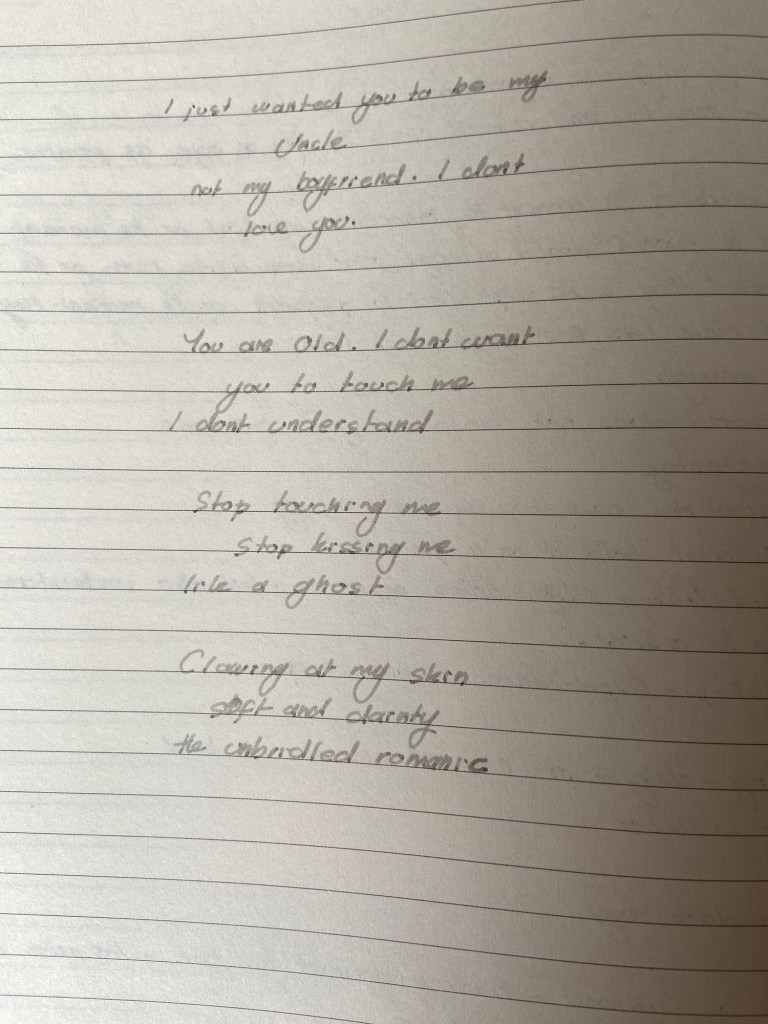 I just wanted you to be my
Uncle
not my boyfriend. I dont
love you.
You are Old. I dont want
you to touch me
I dont understand
Stop touching me
Stop kissing me
like a ghost
Clawing at my skin
soft and dainty
the unbridled romanic